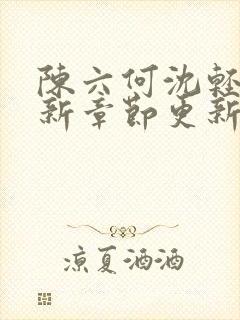 陳六何沈輕
新章節更新
涼夏酒酒